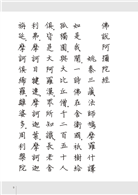 佛說阿彌陀經
姚秦三藏法師鳩摩羅什譯
如是我聞一時佛在舍衛國祇樹給
孤獨園與大比丘僧千二百五十人
俱皆是大阿羅漢眾所知識長老舍
利弗摩訶目犍連摩訶迦葉摩訶迦
旃延摩訶俱絺羅離婆多周利槃陀